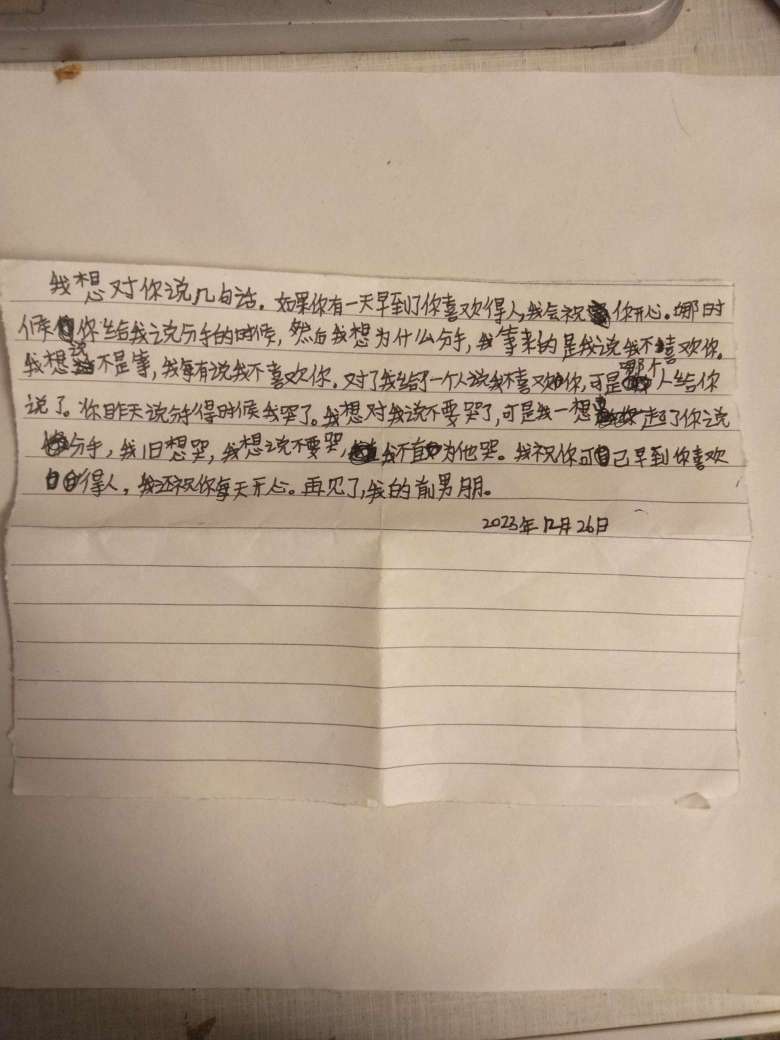 我想对你说几句话。如果你有一天早到了你喜欢得人,我会祝你开心。哪时
候你给我说分手的时候,然后我想为什么分手,我等来的是我说我不喜欢你。
我想说不是等,我每有说我不喜欢你。对了我给了一个人说我不喜欢你,可是哪个人给你
说了。你昨天说分手得时候我哭了。我想对我说不要哭了,可是我一想起了你说
分手,我旧想哭,我想说不要哭,我不直为他哭。我祝你可己早到你喜欢
得人,我还祝你每天开心。再见了,我的前男朋。
2023年12月26日